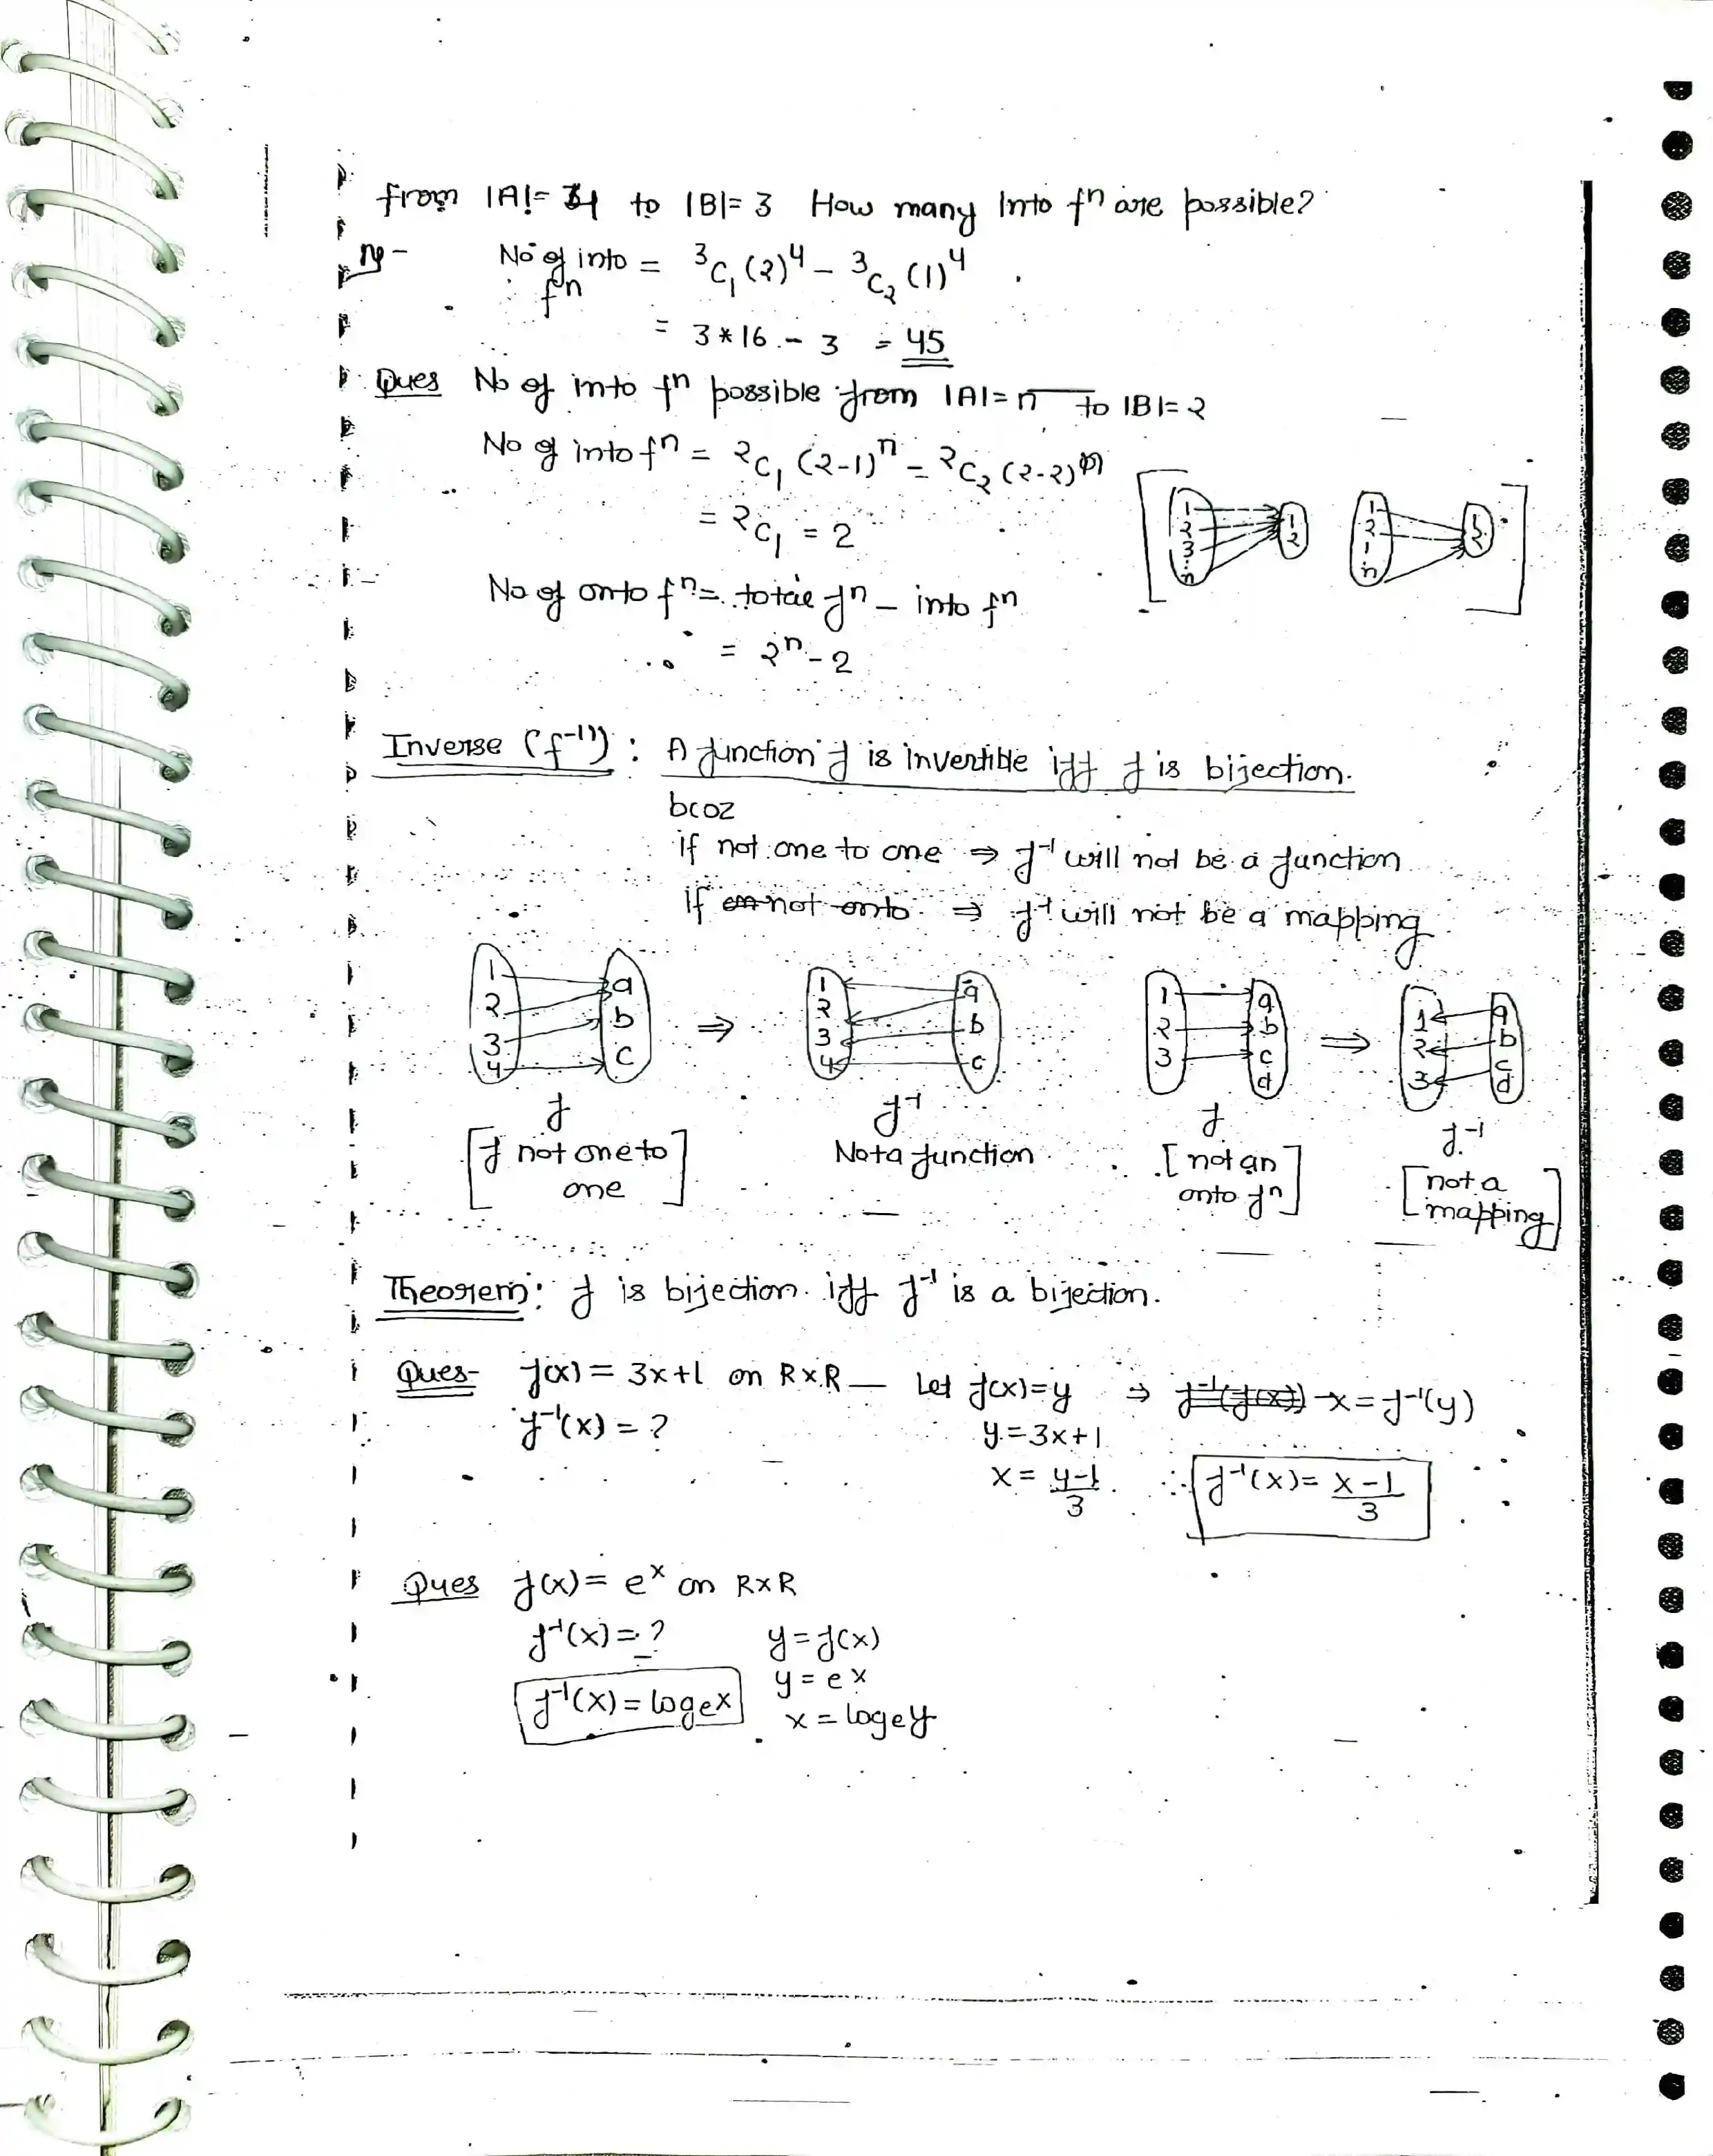 from |A|= 4 to |B|= 3 How many Into fⁿ are possible?
No of into fⁿ = ³C₁ (2)⁴ - ³C₂ (1)⁴
= 3*16 - 3 = 45
Ques No of into fⁿ possible from |A|= n to |B|= 2
No of into fⁿ = ²C₁ (2-1)ⁿ - ²C₂ (2-2)ⁿ
= ²C₁ = 2
1 2 3 : n 1 2 1 2 : n 1 2
No of onto fⁿ = total fⁿ - into fⁿ
= 2ⁿ - 2
Inverse (f⁻¹) : A function f is invertible iff f is bijection.
bcoz
if not one to one ⇒ f⁻¹ will not be a function
if not onto ⇒ f⁻¹ will not be a mapping
1 2 3 4 a b c ⇒ 1 2 3 4 a b c 1 2 3 a b c d ⇒ 1 2 3 a b c d
f f⁻¹ f f⁻¹
[f not one to one] Not a function [not an onto fⁿ] [not a mapping]
Theorem: f is bijection iff f⁻¹ is a bijection.
Ques- f(x) = 3x+1 on R×R — Let f(x)=y ⇒ f⁻¹(f(x)) x = f⁻¹(y)
f⁻¹(x) = ? y = 3x+1
x = y-1/3 ∴ f⁻¹(x) = x-1/3
Ques f(x) = eˣ on R×R
f⁻¹(x) = ? y = f(x)
y = eˣ
f⁻¹(x) = logₑx x = logₑy